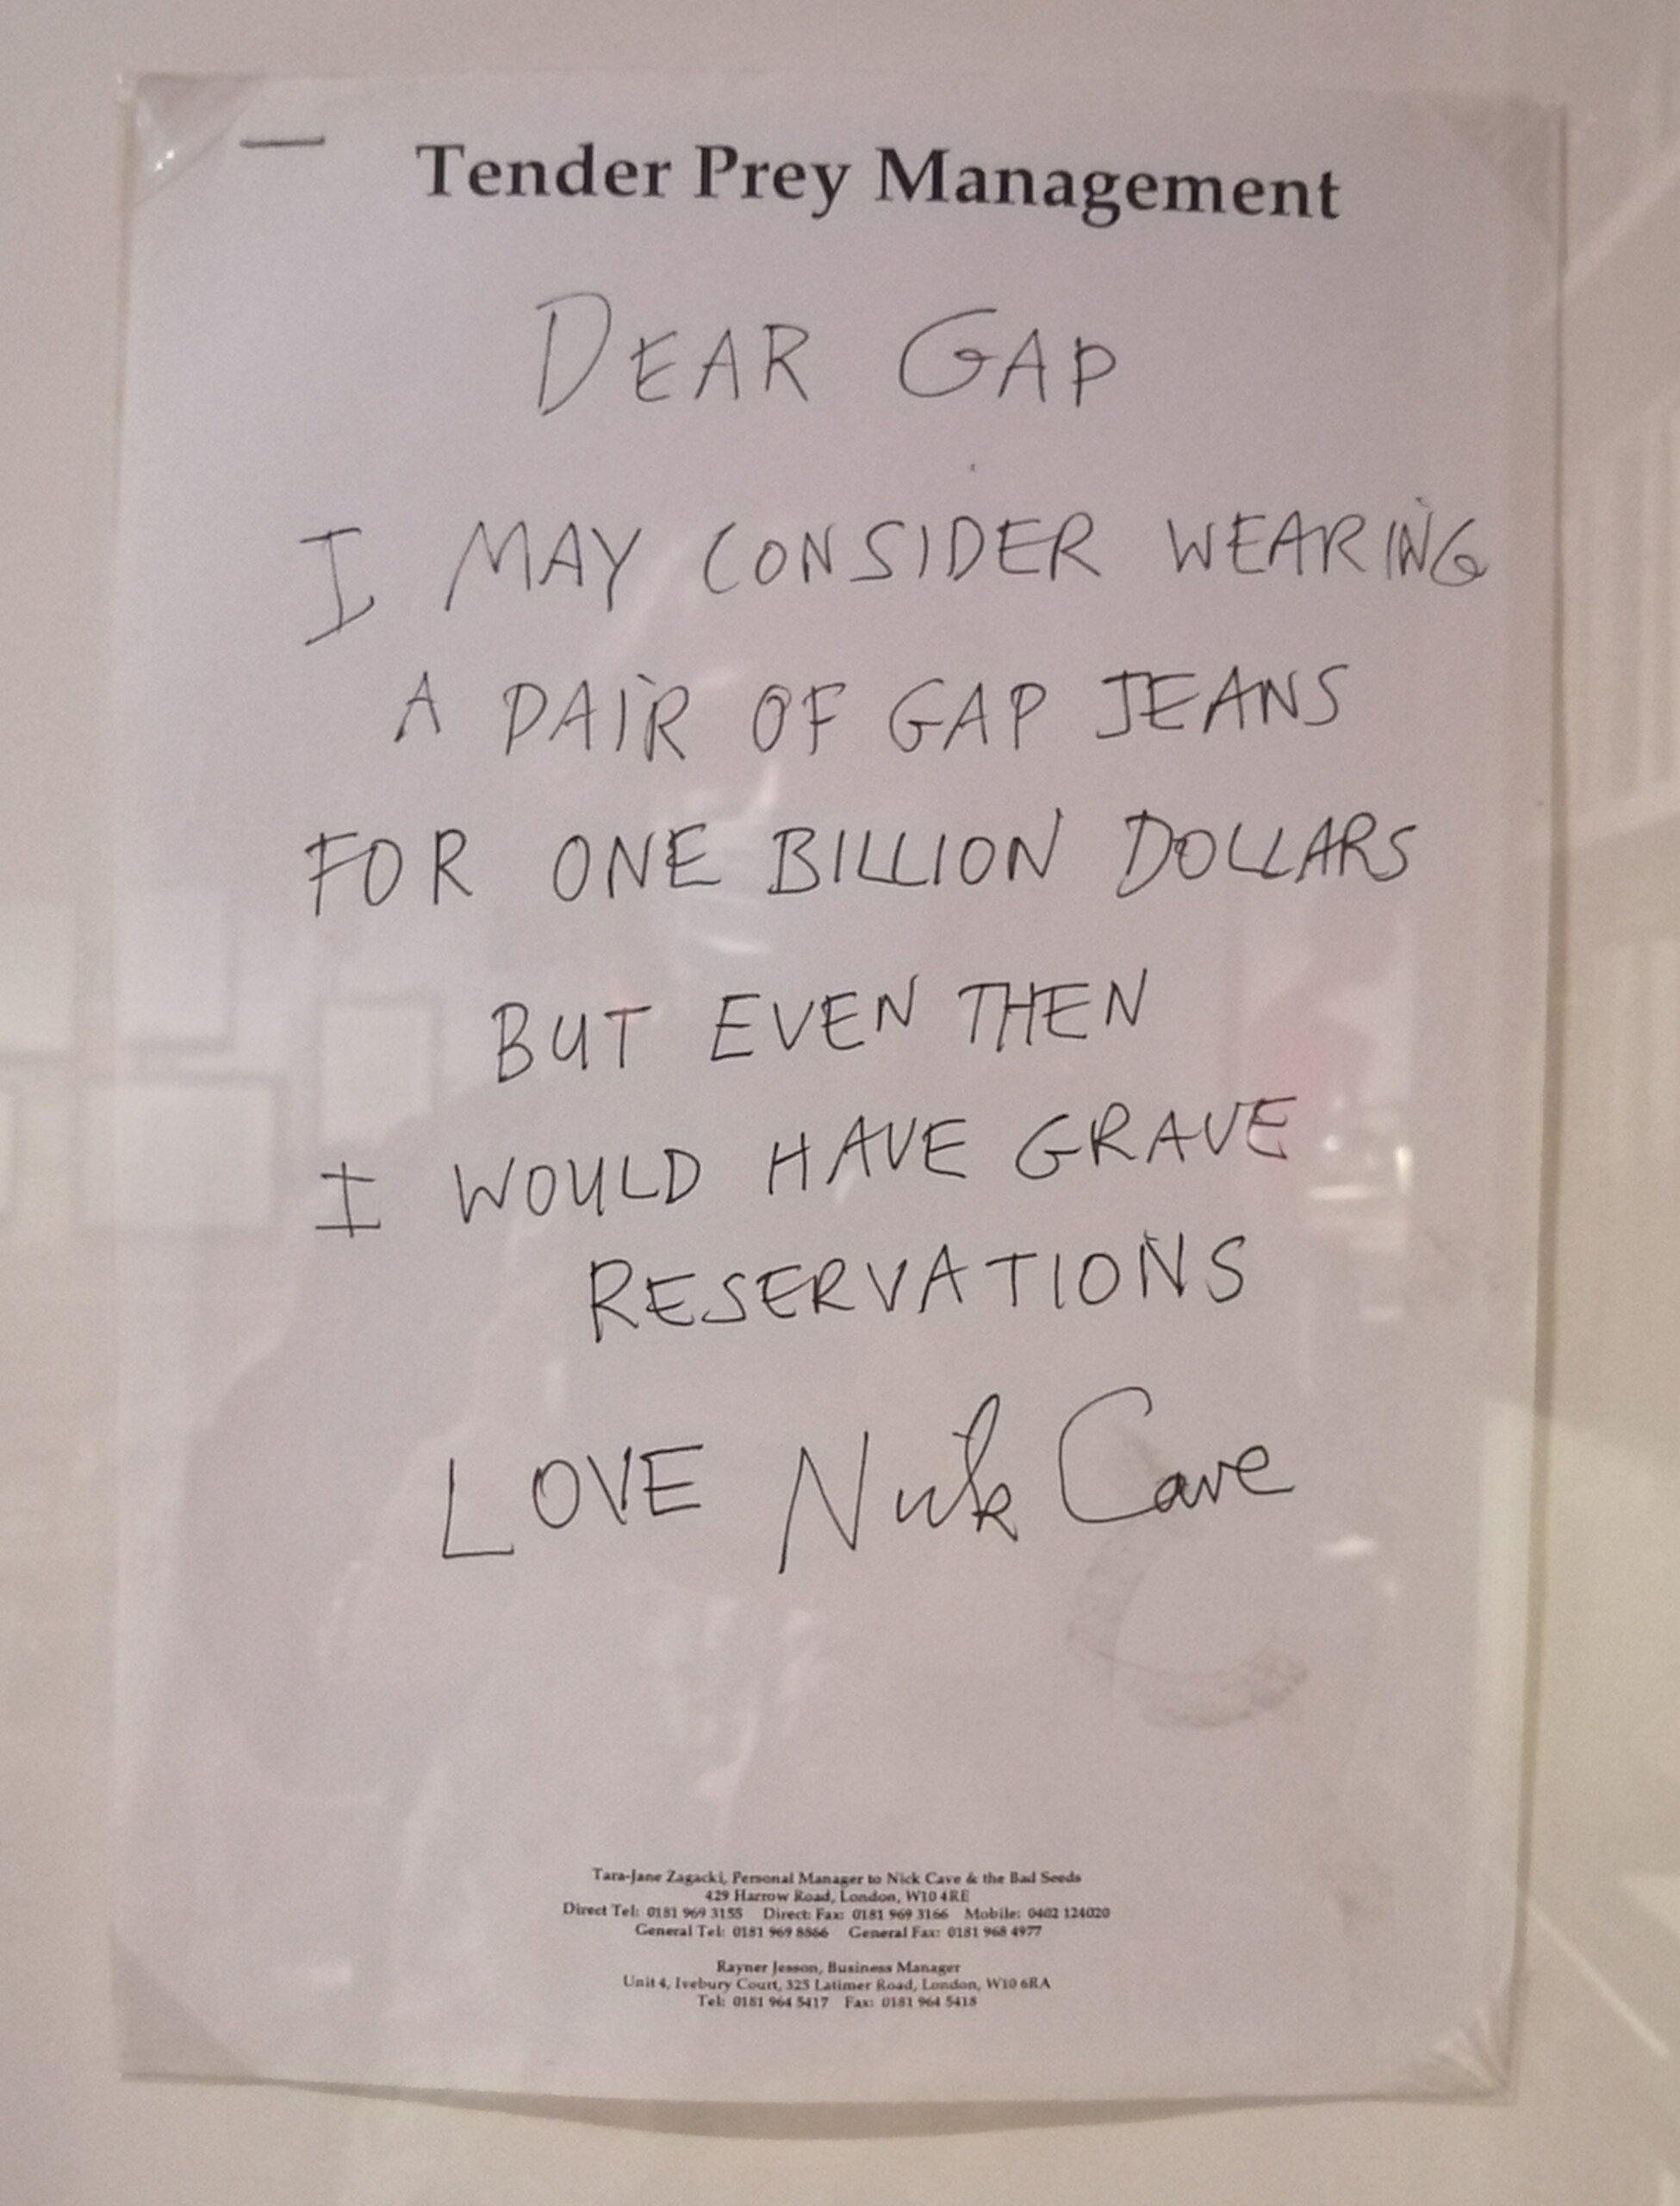 Tender Prey Management
DEAR GAP
I MAY CONSIDER WEARING
A PAIR OF GAP JEANS
FOR ONE BILLION DOLLARS
BUT EVEN THEN
I WOULD HAVE GRAVE
RESERVATIONS
LOVE Nick Cave
Tara-Jane Zagacki, Personal Manager to Nick Cave & the Bad Seeds
429 Harrow Road, London, W10 4RE
Direct Tel: 0181 969 3155 Direct: Fax: 0181 969 3166 Mobile: 0402 124020
General Tel: 0181 969 8866 General Fax: 0181 968 4977
Rayner Jesson, Business Manager
Unit 4, Ivebury Court, 325 Latimer Road, London, W10 6RA
Tel: 0181 964 5417 Fax: 0181 964 5418